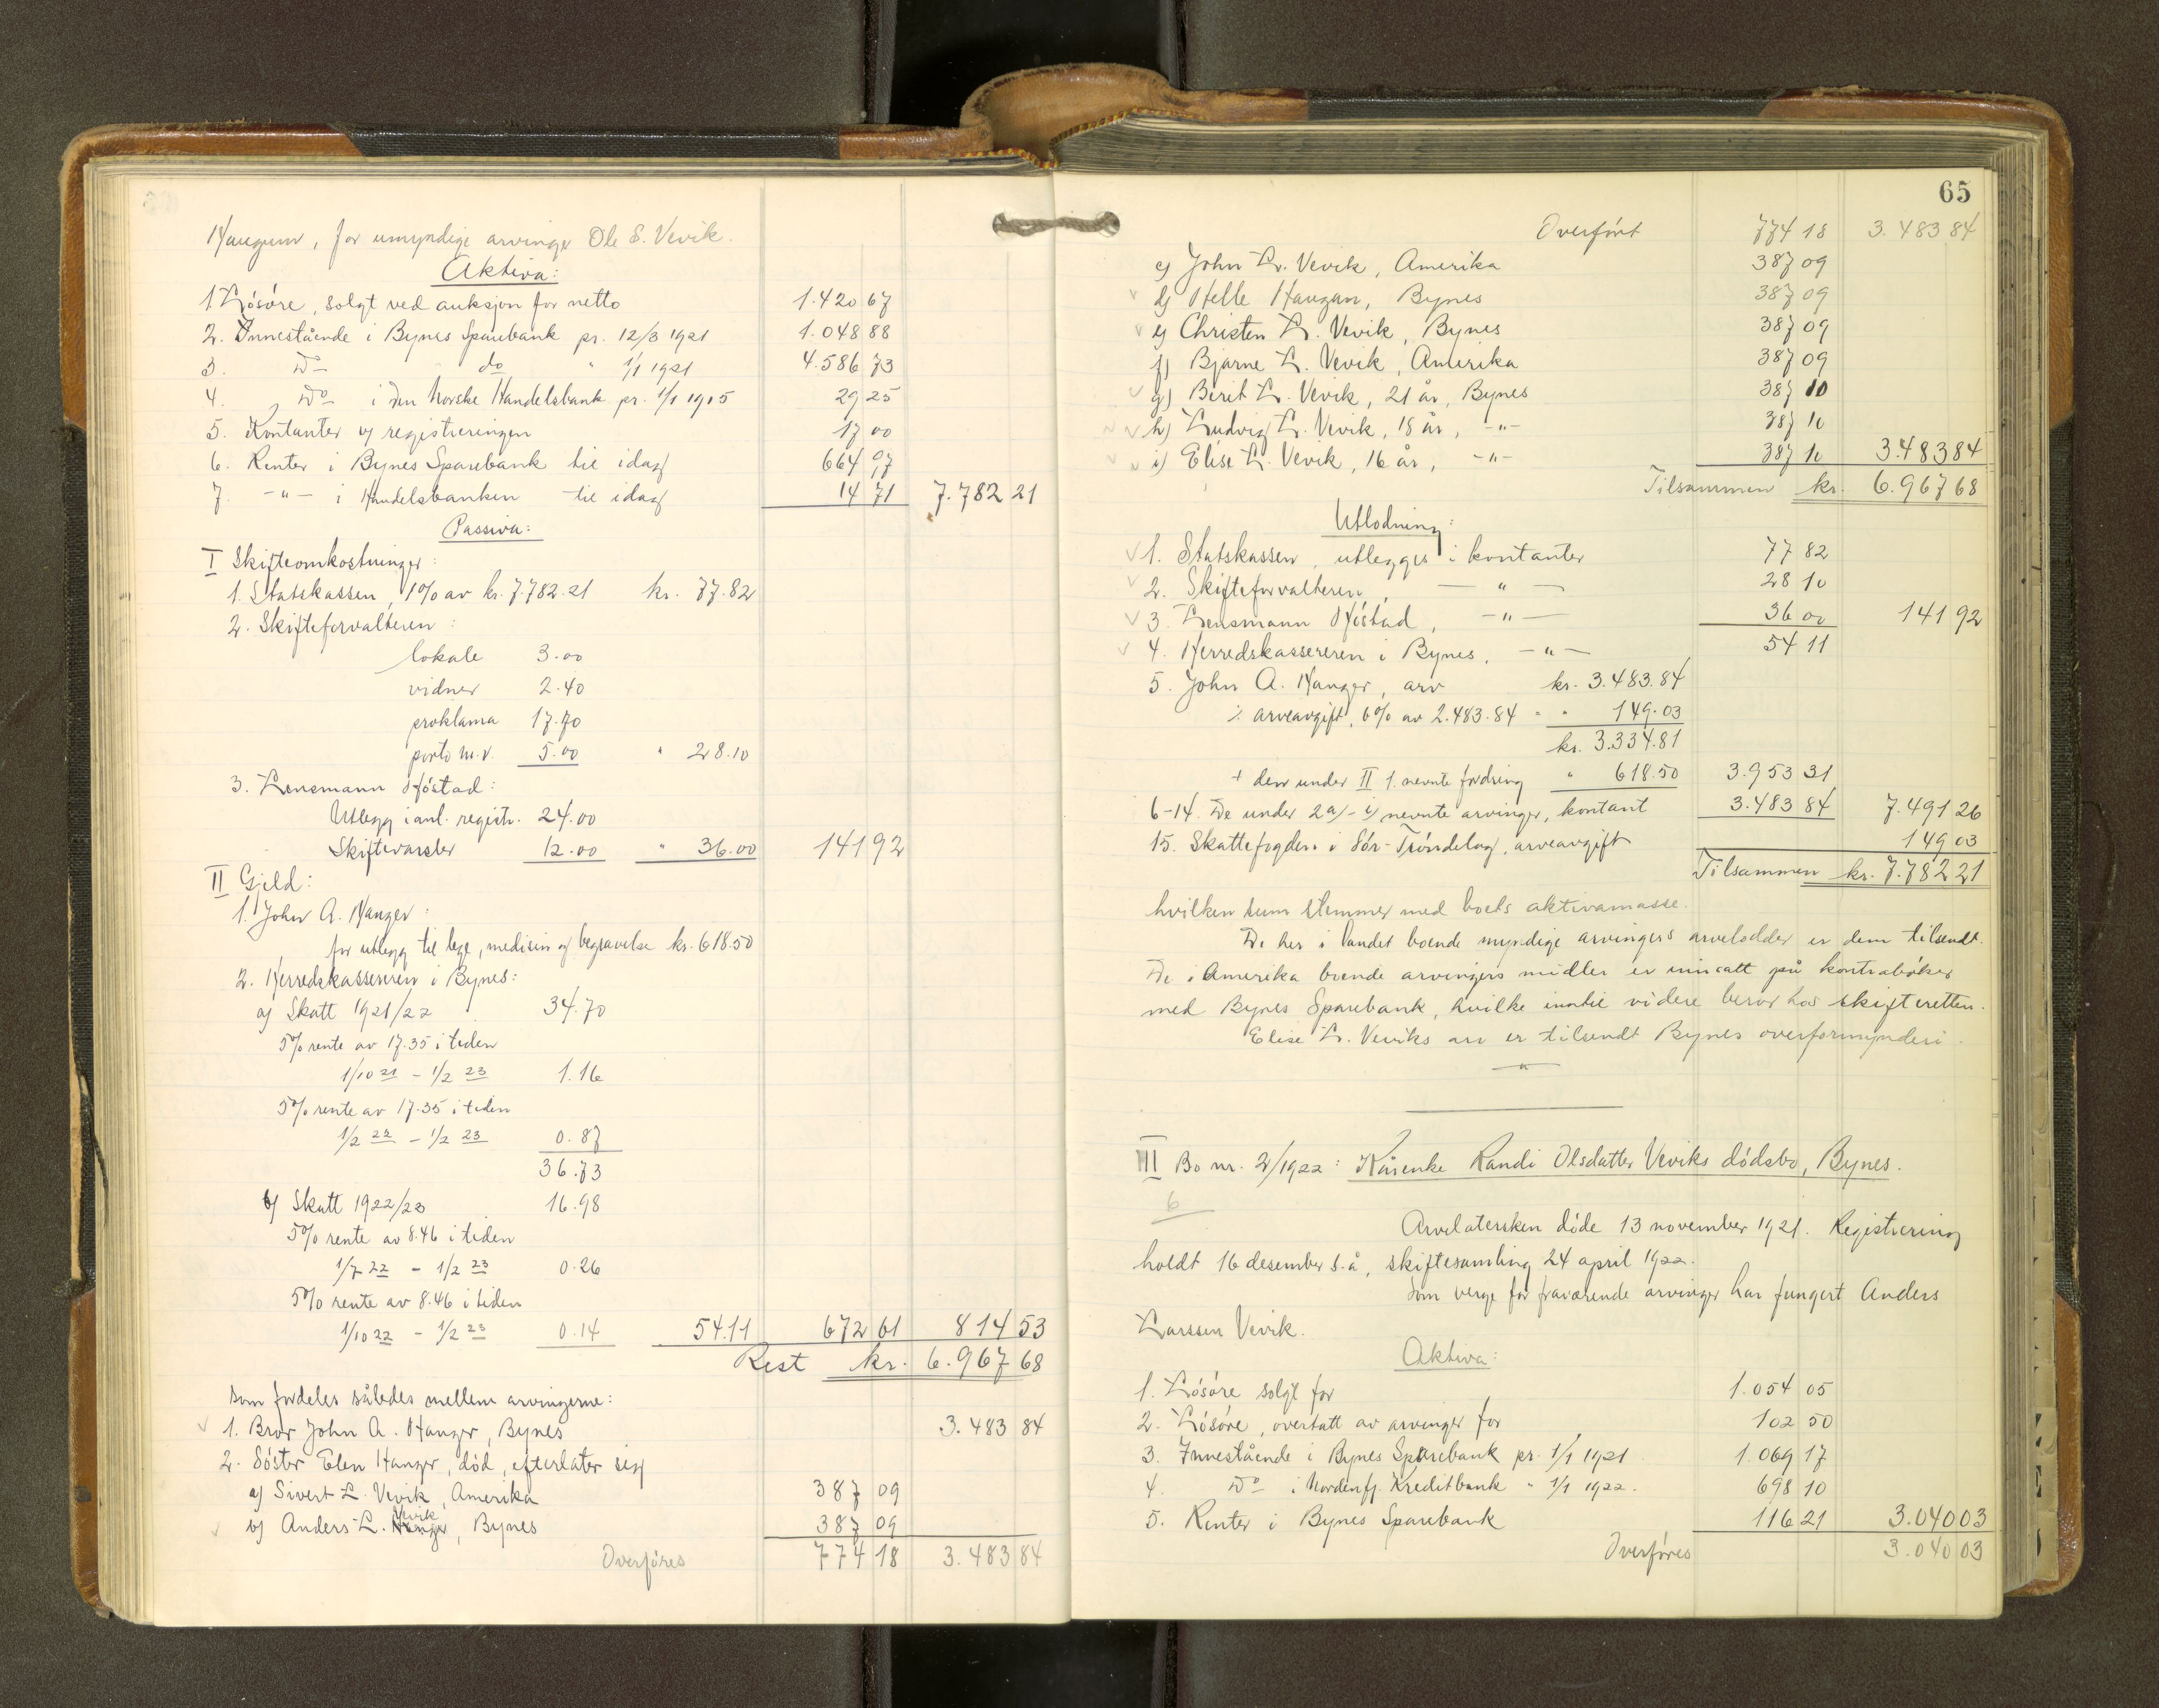 Haugum, for umyndige arvinger Ole S. Vevik.
Aktiva:
1. Lösöre, solgt ved auksjon for netto 1.420 67
2. Innestående i Bynes Sparebank pr. 12/3 1921 1.048 88
3. Do do " 1/1 1921 4.586 73
4. Do i den Norske Handelsbank pr. 1/1 1915 29 25
5. Kontanter v/ registreringen 17 00
6. Renter i Bynes Sparebank til idag 664 97
7. -"- i Handelsbanken til idag 14 71 7.782 21
Passiva:
I Skifteomkostninger:
1. Statskassen, 1% av kr. 7.782.21 kr. 77.82
2. Skifteforvalteren:
lokale 3.00
vidner 2.40
proklama 17.70
porto m.v. 5.00 " 28.10
3. Lensmann Höstad:
Utlegg i anl. registr. 24.00
Skiftevarsler 12.00 " 36.00 141 92
II Gjeld:
1. John A. Hanger:
for utlegg til lege, medisin og begravelse kr. 618.50
2. Herredskassereren i Bynes:
a) Skatt 1921/22 34.70
5% rente av 17.35 i tiden
1/10 21 - 1/2 23 1.16
5% rente av 17.35 i tiden
1/2 22 - 1/2 23 0.87
36.73
b) Skatt 1922/23 16.98
5% rente av 8.46 i tiden
1/7 22 - 1/2 23 0.26
5% rente av 8.46 i tiden
1/10 22 - 1/2 23 0.14 54.11 672 61 814 53
Rest kr. 6.967 68
som fordeles således mellem arvingerne:
1. Bror John A. Hanger, Bynes 3.483 84
2. Söster Elen Hanger, död, efterlater sig
a) Sivert L. Vevik, Amerika 387 09
Vevik
b) Anders L. Hanger, Bynes 387 09
Overföres 774 18 3.483 84
65
Overfört 774 18 3.483 84
c) John L. Vevik, Amerika 387 09
d) Helle Haugan, Bynes 387 09
e) Christen L. Vevik, Bynes 387 09
f) Bjarne L. Vevik, Amerika 387 09
g) Berit L. Vevik, 21 år, Bynes 387 10
h) Ludvig L. Vevik, 18 år, -"- 387 10
i) Elise L. Vevik, 16 år, -"- 387 10 3.483 84
Tilsammen kr. 6.967 68
Utlodning:
1. Statskassen, utlegges i kontanter 77 82
2. Skifteforvalteren, -"- 28 10
3. Lensmann Höstad, -"- 36 00 141 92
4. Herredskassereren i Bynes, -"- 54 11
5. John A. Hanger, arv kr. 3.483.84
÷ arveavgift, 6% av 2.483.84 - " 149.03
kr. 3.334.81
+ den under II 1. nevnte fordring " 618.50 3.953 31
6-14. De under 2 a) - i) nevnte arvinger, kontant 3.483 84 7.491 26
15. Skattefogden i Sör-Tröndelag, arveavgift 149 03
Tilsammen kr. 7.782 21
hvilken sum stemmer med boets aktivamasse.
De her i landet boende myndige arvingers arvelodder er dem tilsendt.
De i Amerika boende arvingers midler er innsatt på kontraböker
med Bynes Sparebank, hvilke inntil videre beror hos skifteretten.
Elise L. Veviks arv er tilsendt Bynes overformynderi.
-"-
III Bo nr. 2/1922: Kårenke Randi Olsdatter Veviks dödsbo, Bynes.
6
Arvelatersken döde 13 november 1921. Registrering
holdt 16 desember s.å, skiftesamling 24 april 1922.
Som verge for fraværende arvinger har fungert Anders
Larssen Vevik.
Aktiva:
1. Lösöre solgt for 1.054 05
2. Lösöre, overtatt av arvinger for 102 50
3. Innestående i Bynes Sparebank pr. 1/1 1921 1.069 17
4. Do i Nordenfj. Kreditbank " 1/1 1922. 698 10
5. Renter i Bynes Sparebank 116 21 3.040 03
Overföres 3.040 03